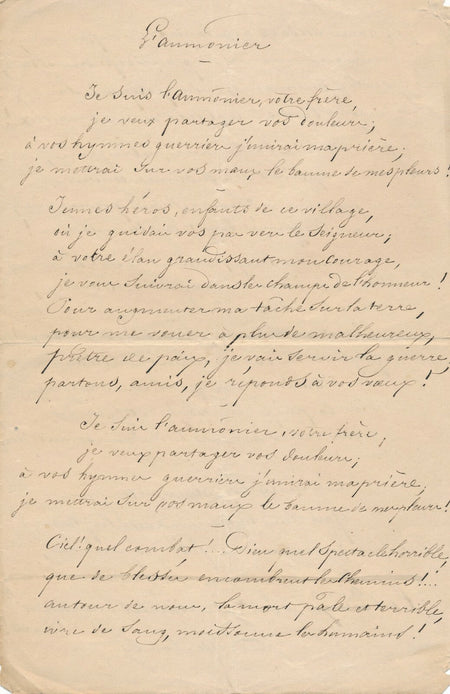 L'aumônier
Je suis l'aumônier, votre frère,
je veux partager vos douleurs;
à vos hymnes guerriers j'unirai ma prière;
je mettrai sur vos maux le baume de mes pleurs!
Jeunes héros, enfants de ce village,
où je guidais vos pas vers le Seigneur;
à votre élan grandissant mon courage,
je vous suivrai dans les champs de l'honneur!
Pour augmenter ma tâche sur la terre,
pour me vouer à plus de malheureux,
prêtre de paix, je vais servir la guerre,
partons, amis, je réponds à vos vœux!
Je suis l'aumônier, votre frère,
je veux partager vos douleurs;
à vos hymnes guerriers j'unirai ma prière;
je mettrai sur vos maux le baume de mes pleurs!
Ciel! quel combat!... Dieu spectacle horrible,
que de blessés encombrent les chemins!..
autour de nous, la mort pâle et terrible,
ivre de sang, moissonne les humains!